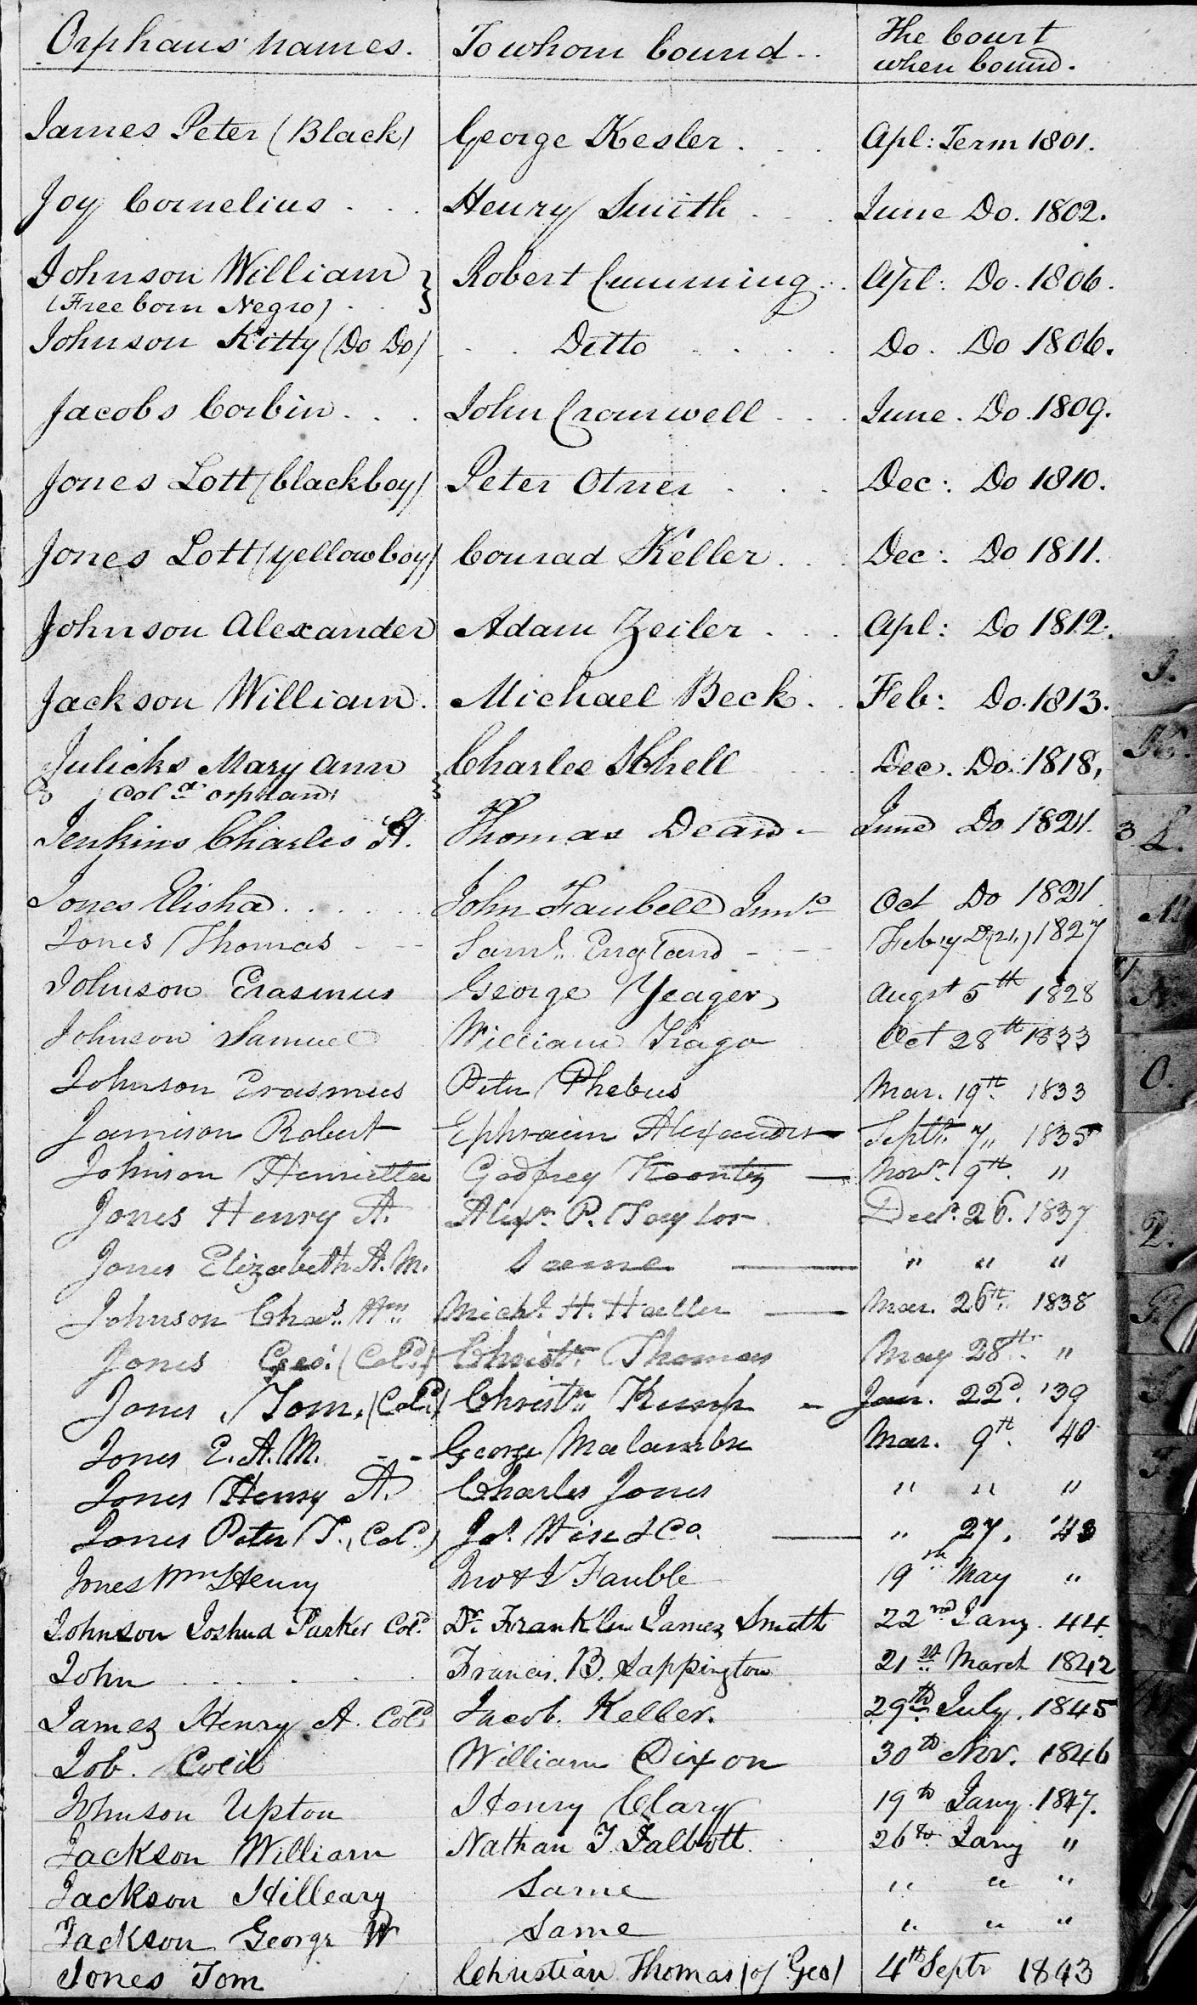 Orphans names. To whom bound. The Court
when bound.
James Peter (Black) George Kesler . . Apl: Term 1801.
Joy Cornelius . . . Henry Smith . . . June Do. 1802.
Johnson William } Robert Cumming . . Apl: Do. 1806.
(Free born Negro) . .
Johnson Kitty (Do Do) . . Ditto . . . . Do. Do 1806.
Jacobs Corbin . . . John Cromwell . . . June. Do. 1809.
Jones Lott (blackboy) Peter Otner . . . Dec: Do 1810.
Jones Lott (yellowboy) Conrad Keller . . . Dec: Do 1811.
Johnson Alexander Adam Zeiler . . . Apl: Do 1812.
Jackson William . Michael Beck . . Feb: Do. 1813.
Julicks Mary Ann } Charles Shell . . . Dec. Do. 1818,
Cold orphan
Jenkins Charles H. Thomas Dean - June Do 1821.
Jones Elisha . . . . . John Faubell Junr Oct Do 1821
Jones Thomas - - - Saml. England - - Feby Do (21.) 1827
Johnson Erasmus George Yeager, Augst 5th 1828
Johnson Samuel William Kago Oct 28th 1833
Johnson Erasmus Peter Phebus Mar. 19th 1833
Jamison Robert Ephraim Alexander - Septr. 7,, 1835
Johnson Henrietta Godfrey Koontz — Novr. 9th. "
Jones Henry A. Alexr P. Taylor Decr. 26. 1837
Jones Elizabeth A. M. Same — " " "
Johnson Chas. Wm Michl. H. Haller — Mar. 26th. 1838
Jones Geo. (Cold.) Christn Thomas May 28th "
Jones, Tom. (Cold.) Christn Kemp - Jan. 22d '39
Jones E. A. M. - - George Malambre Mar. 9th. '40
Jones Henry A. Charles Jones " " "
Jones Peter T. (Col.) Jos. Wise & Co. — " 27. '43
Jones Wm Henry Jno & J Fauble 19th May "
Johnson Joshua Parker Cold. Dr. Franklin James Smith 22nd Jany. 44.
John . . . . . Francis. B. Sappington 21st March 1842
James Henry A. Cold Jacob. Keller. 29th July. 1845
Job. Cecil William Dixon 30th Nov. 1846
Johnson Upton Henry Clary 19th Jany. 1847.
Jackson William Nathan T. Talbott. 26th Jany "
Jackson Hilleary Same " " "
Jackson George W Same " " "
Jones Tom Christian Thomas (of Geo) 4th Septr 1843
I.
K.
L.
M
N.
O.